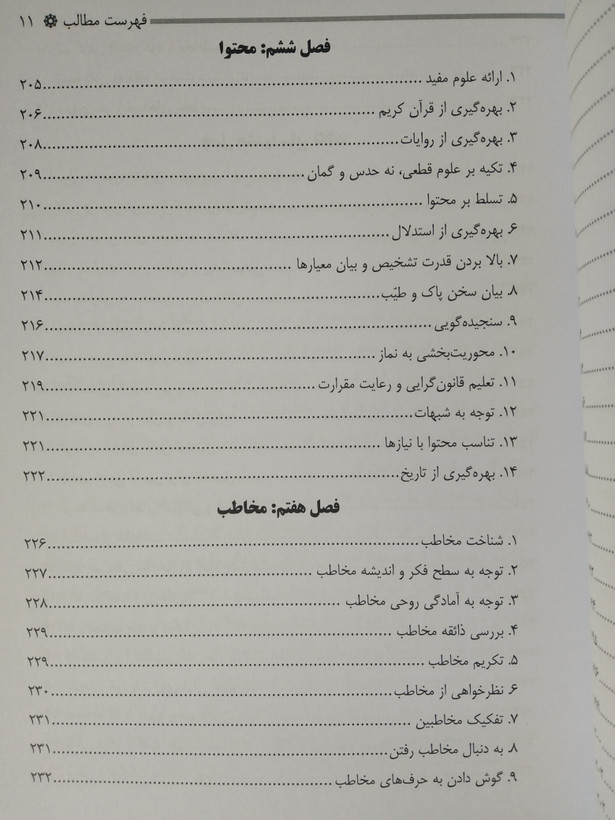 فهرست مطالب ۱۱
فصل ششم: محتوا
۱. ارائه علوم مفید ........ ۲۰۵
۲. بهره‌گیری از قرآن کریم ........ ۲۰۶
۳. بهره‌گیری از روایات ........ ۲۰۸
۴. تکیه بر علوم قطعی، نه حدس و گمان ........ ۲۰۹
۵. تسلط بر محتوا ........ ۲۱۰
۶. بهره‌گیری از استدلال ........ ۲۱۱
۷. بالا بردن قدرت تشخیص و بیان معیارها ........ ۲۱۲
۸. بیان سخن پاک و طیّب ........ ۲۱۴
۹. سنجیده‌گویی ........ ۲۱۶
۱۰. محوریت‌بخشی به نماز ........ ۲۱۷
۱۱. تعلیم قانون‌گرایی و رعایت مقرارت ........ ۲۱۹
۱۲. توجه به شبهات ........ ۲۲۱
۱۳. تناسب محتوا با نیازها ........ ۲۲۱
۱۴. بهره‌گیری از تاریخ ........ ۲۲۲
فصل هفتم: مخاطب
۱. شناخت مخاطب ........ ۲۲۶
۲. توجه به سطح فکر و اندیشه مخاطب ........ ۲۲۷
۳. توجه به آمادگی روحی مخاطب ........ ۲۲۸
۴. بررسی ذائقه مخاطب ........ ۲۲۹
۵. تکریم مخاطب ........ ۲۲۹
۶. نظرخواهی از مخاطب ........ ۲۳۰
۷. تفکیک مخاطبین ........ ۲۳۱
۸. به دنبال مخاطب رفتن ........ ۲۳۱
۹. گوش دادن به حرف‌های مخاطب ........ ۲۳۲